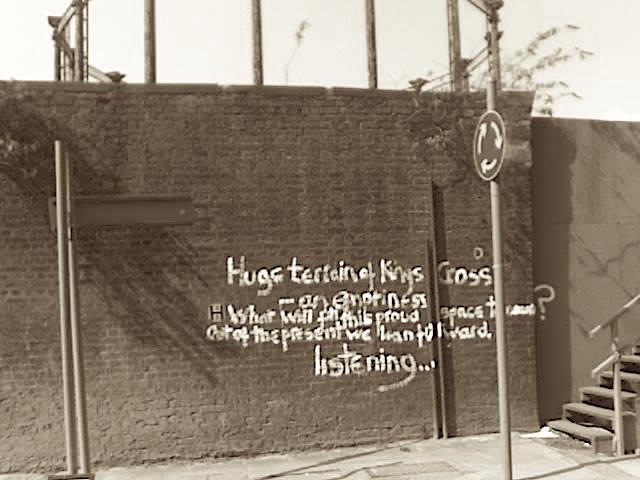 Huge terrain of Kings Cross
— an emptiness
What will fill this proud space to come?
Out of the present we lean forward,
listening...